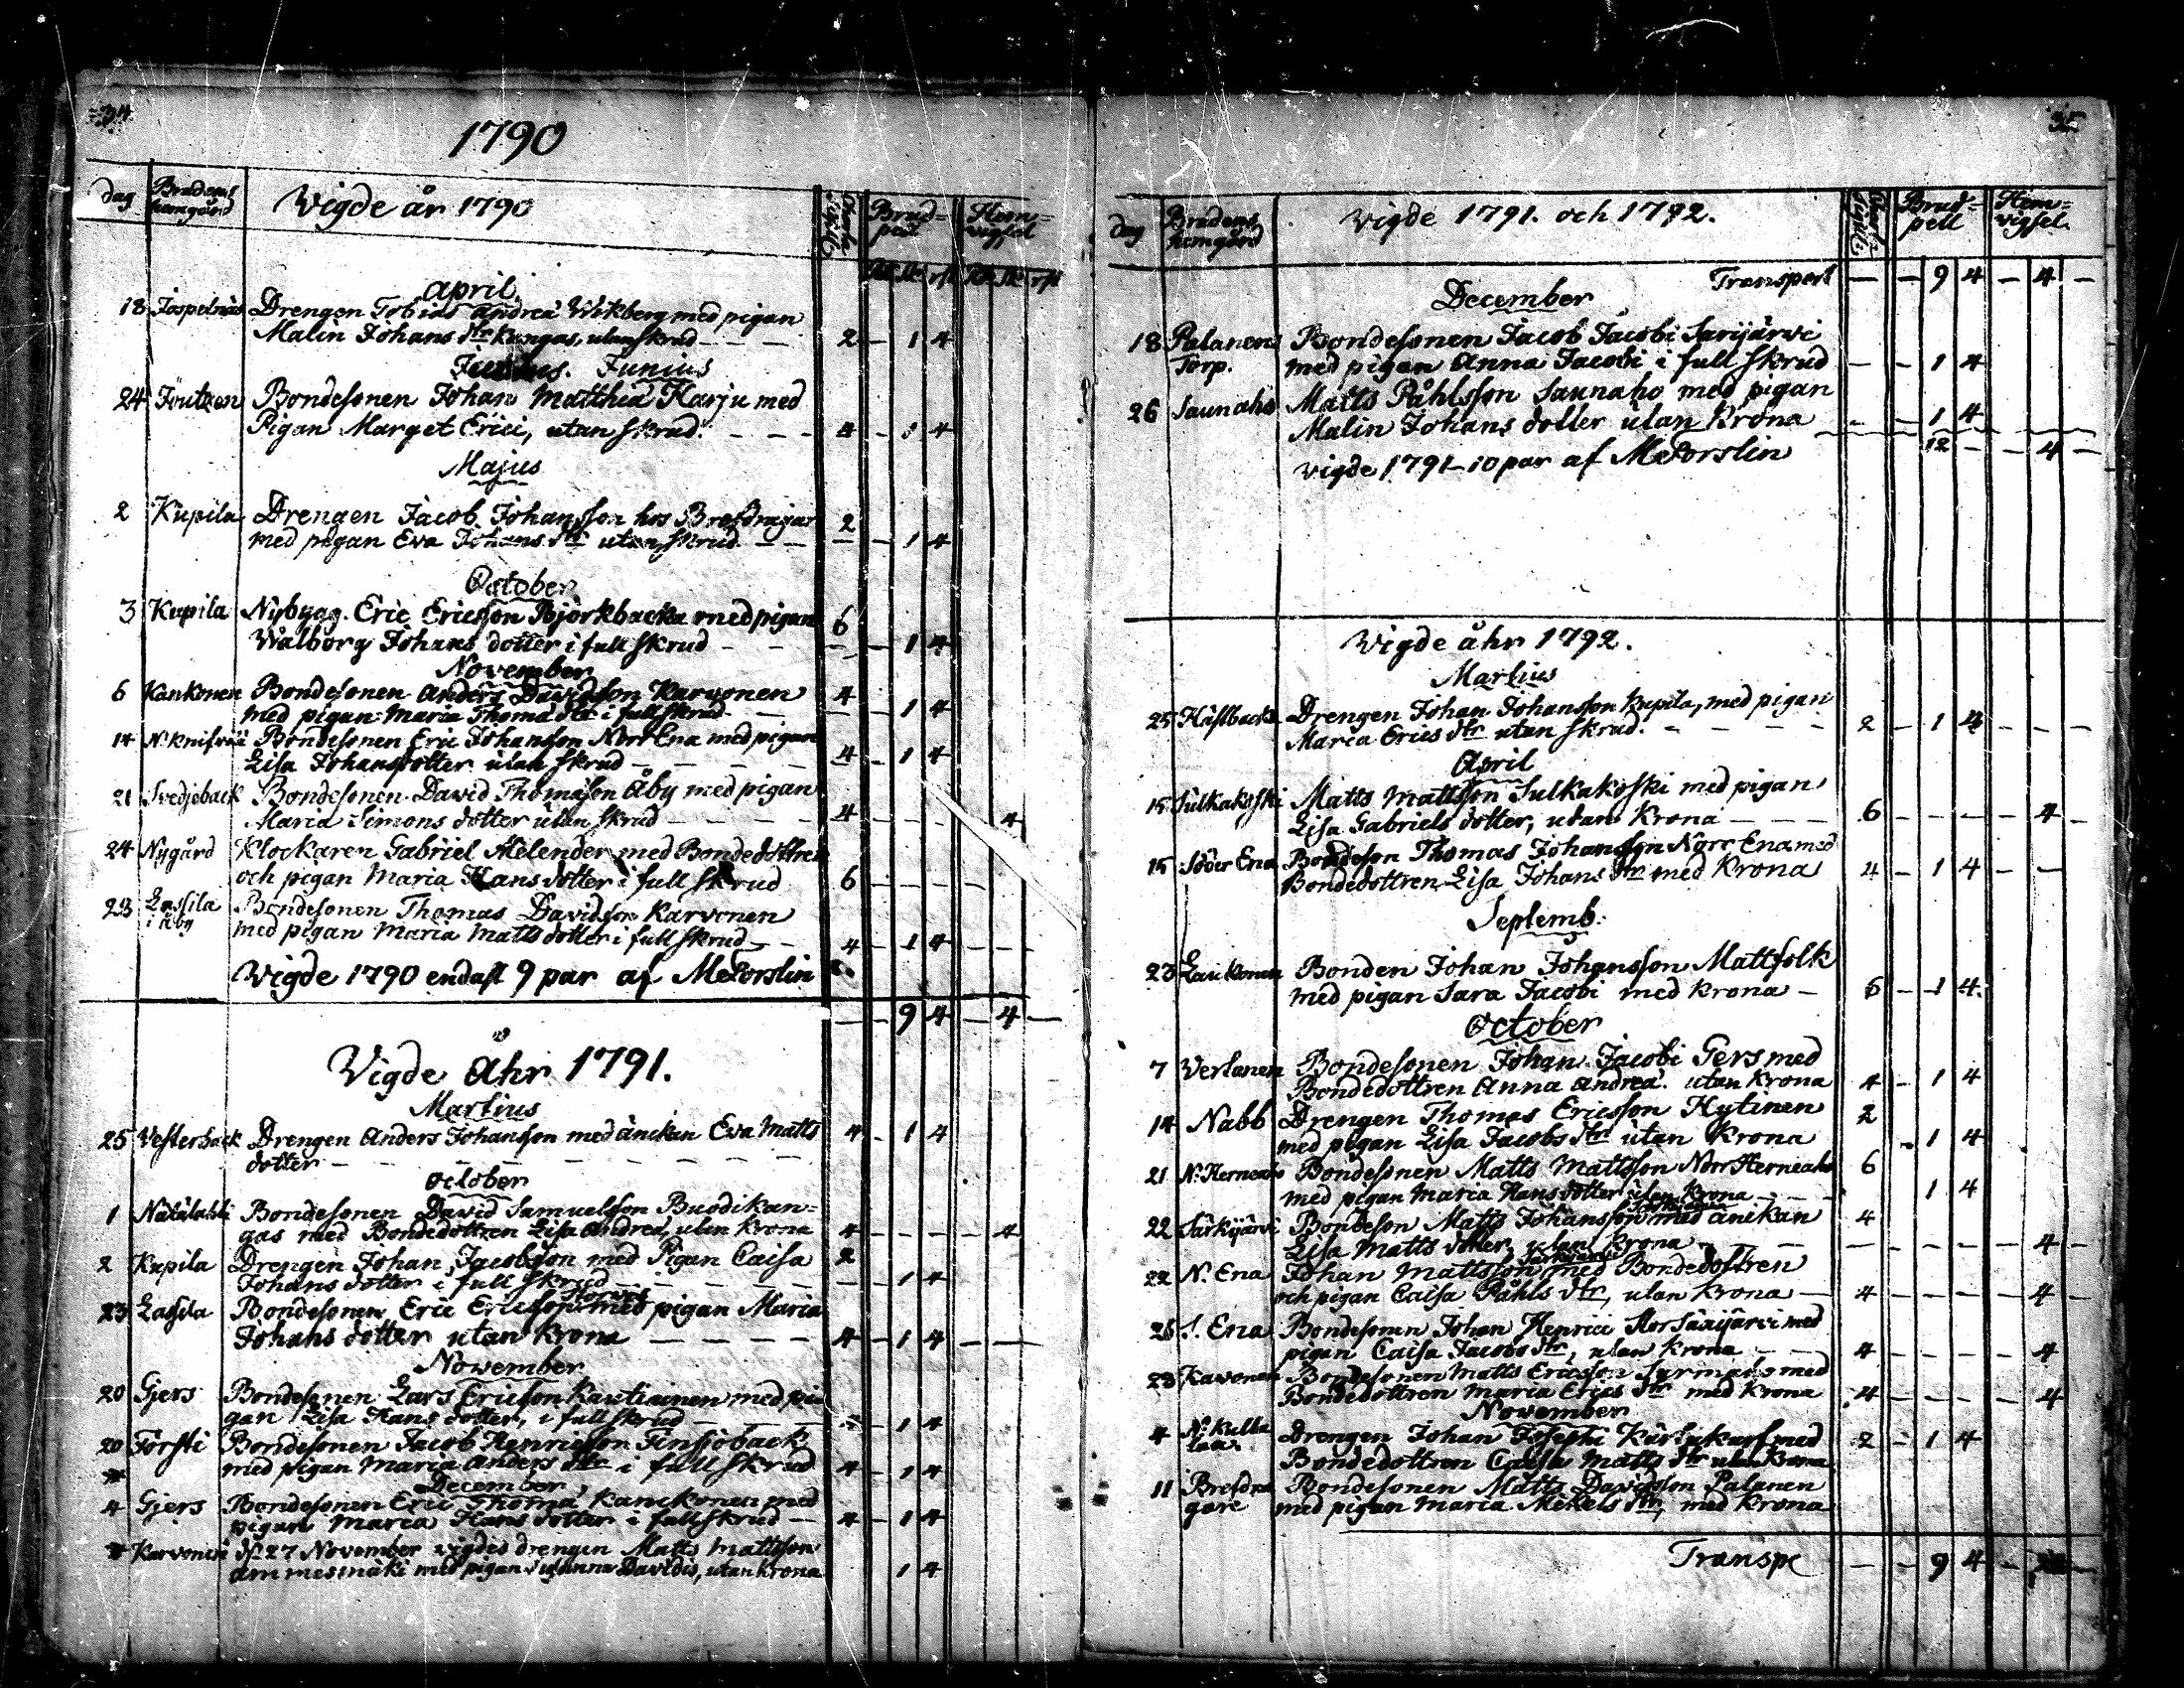 34
1790
dag Brudens hemgård Vigde år 1790 Brudpell Hemvigsel
April.
18 Jospelnäs Drengen Tobias Andreæ Wikberg med pigan
Malin Johans dtr Kangas, utan skrud 2 - 1 4
Junius
24 Joutzen Bondesonen Johan Matthiæ Harju med
Pigan Marget Erici, utan skrud. 4 - 1 4
Majus
2 Kupila Drengen Jacob Johansson hos Brefdragar 2
med pigan Eva Johans dtr utan skrud - 1 4
October
3 Kupila Nybygg. Eric Ericsson Björkbacka med pigan 6
Walborg Johans dotter i full skrud - 1 4
November
6 Kankonen Bondesonen Anders Davidsson Karvonen 4
med pigan Maria Thomæ dtr i full skrud - 1 4
14 N. Knifsiä Bondesonen Eric Johansson Norr Ena med pigan
Lisa Johansdotter utan skrud 4 - 1 4
21 Svedjeback Bondesonen David Thomasson Åby med pigan
Maria Simons dotter utan skrud 4 4
24 Nygård Klockaren Gabriel Melender med Bondedottren
och pigan Maria Hans dotter i full skrud 6
28 Lassila i Åby Bondesonen Thomas Davidsson Karvonen
med pigan Maria Matts dotter i full skrud 4 - 1 4
Vigde 1790 endast 9 par af M Forslin
9 4 - 4
Vigde Åhr 1791.
Martius
25 Vesterback Drengen Anders Johansson med änckan Eva Matts 4 - 1 4
dotter
October
1 Nätälahti Bondesonen David Samuelsson Buodikan=
gas med Bondedottren Lisa Andreæ, utan krona 4 4
2 Kupila Drengen Johan Jacobsson med Pigan Caisa 2
Johans dotter i full skrud - 1 4
23 Lassila Bondesonen Eric Ericsson med pigan Maria
Johans dotter utan krona 4 - 1 4
November
20 Gjers Bondesonen Lars Ericsson Kautiainen med pi
gan Lisa Hans dotter, i full skrud - 1 4
20 Forsti Bondesonen Jacob Henricsson Finsjöback
med pigan Maria Anders dtr i full skrud 4 - 1 4
December
4 Gjers Bondesonen Eric Thomæ Kanckonen med
pigan Maria Hans dotter i full skrud 4 - 1 4
Karvonen d. 27 November vigdes drengen Matts Mattsson
Ammesmäki med pigan Susanna Davidis, utan krona 1 4
35
dag Brudens hemgård Vigde 1791. och 1792. Brudpell Hemvigsel.
Transport - - 9 4 - 4 -
December
18 Palanens Torp. Bondesonen Jacob Jacobi Sarijärvi
med pigan Anna Jacobi i full skrud - - 1 4
26 Saunaho Matts Påhlsson Saunaho med pigan
Malin Johans dotter utan krona - - 1 4
Vigde 1791 - 10 par af M Forslin 12 - - 4 -
Vigde åhr 1792.
Martius
25 Hästbacka Drengen Johan Johansson Kupila, med pigan
Maria Erics dtr utan skrud. 2 - 1 4
April
15 Sulkakoski Matts Mattsson Sulkakoski med pigan
Lisa Gabriels dotter, utan krona 6 4
15 Söder Ena Bondeson Thomas Johansson Norr Ena med
Bondedottren Lisa Johans dtr med Krona 4 - 1 4
Septemb.
23 Bonden Johan Johansson Mattfolk
med pigan Sara Jacobi med krona 6 - 1 4
October
7 Vertanen Bondesonen Johan Jacobi Gers med
Bondedottren Anna Andreæ utan Krona 4 - 1 4
14 Nabb Drengen Thomas Ericsson Hytinen 2
med pigan Lisa Jacobs dtr utan krona - 1 4
21 N. Herneaho Bondesonen Matts Mattsson Norr Herneaho 6
med pigan Maria Hans dotter utan krona 1 4
22 Särkijärvi Bondeson Matts Johansson med änckan 4
Lisa Matts dotter, utan krona 4
22 N. Ena Johan Mattsson med Bondedottren
och pigan Caisa Påhls dtr, utan krona 4 4
26 S. Ena Bondesonen Johan Henrici Stor Sääjärvi med
pigan Caisa Jacobs dtr, utan krona 4 4
28 Kavonen Bondesonen Matts Ericsson Syrmäis med
Bondedottren Maria Erics dtr med krona 4 4
November
4 N. Kulla Drengen Johan Josephi med 2 - 1 4
Bondedottren Caisa Matts dtr utan krona
11 Brefdra gare Bondesonen Matts Davidsson Palanen
med pigan Maria Mickels dtr, med krona
Transp. - - 9 4